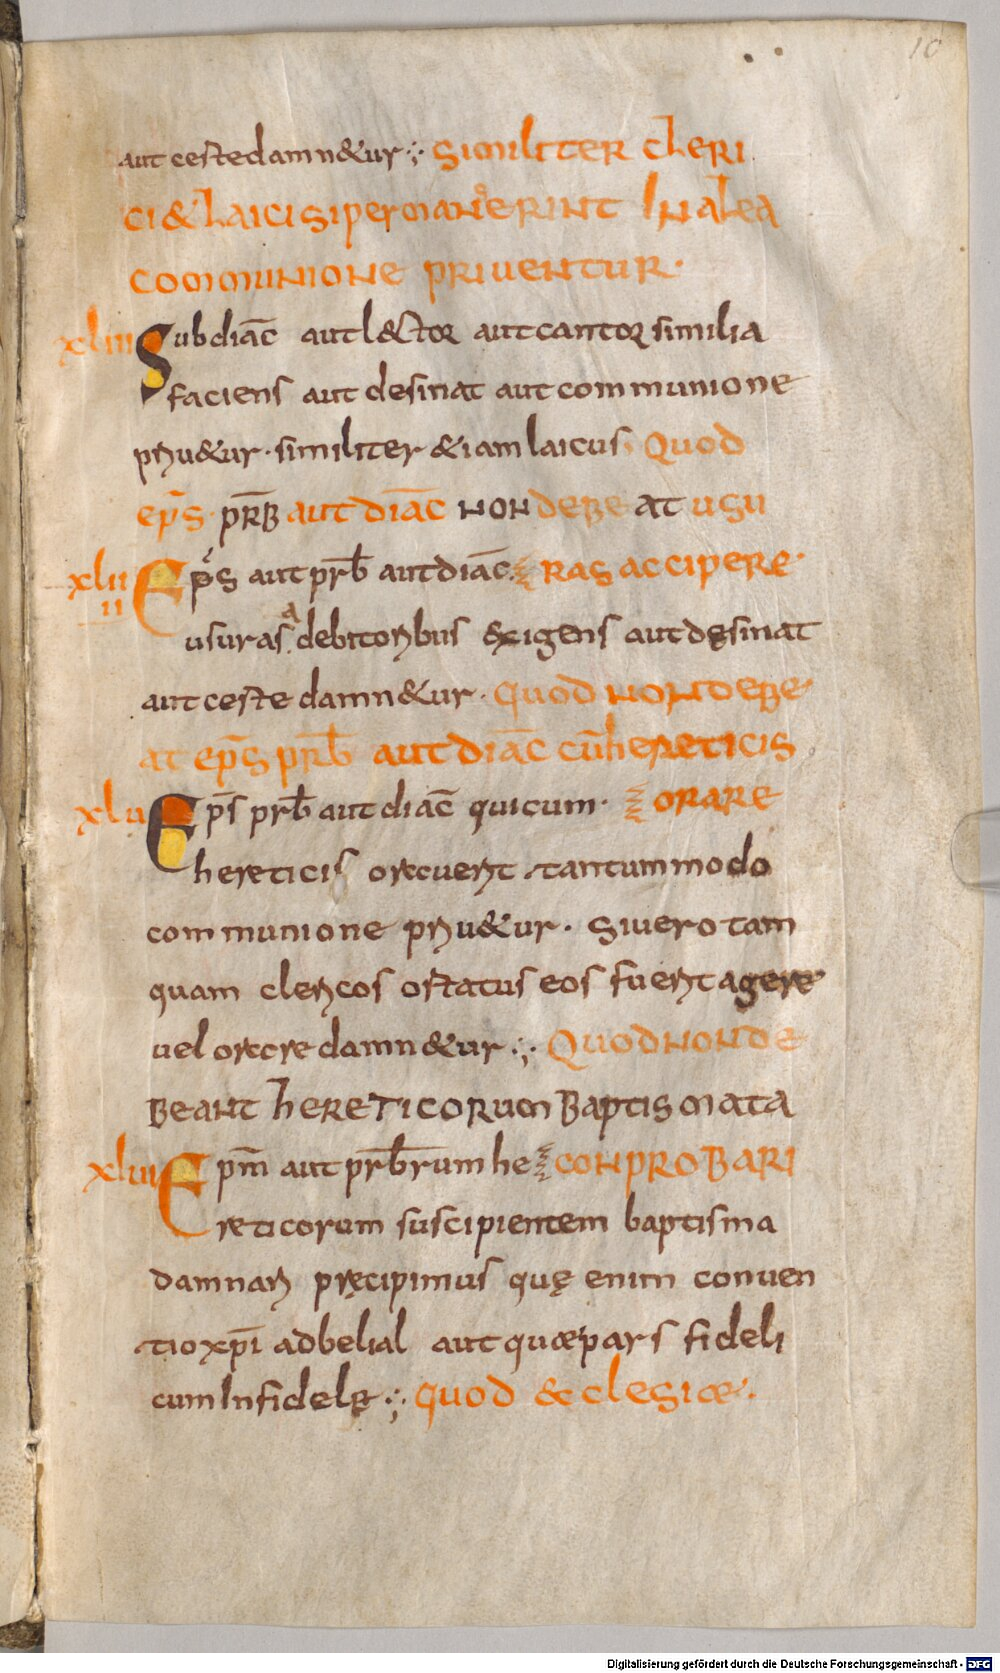 10
aut certe damn&ur ·,· SIMILITER CLERI
CI & LAICI SI PERMANSERINT IN ALEA
COMMUNIONE PRIVENTUR·
xliii Subdiac̄ aut lector aut cantor similia
faciens aut desinat aut communione
priu&ur· similiter &iam laicus QUOD
EP̄S· PR̄B AUT DIĀC NON DEBEAT USU
xliiii Ep̄s aut prb̄ aut diāc. RAS ACCIPERE·
usuras a debitoribus exigens aut desinat
aut certe damn&ur· QUOD NON DEBE
AT EP̄S PRB̄ AUT DIĀC CŪ HERETICIS
xlu Ep̄s prb̄ aut diac̄ qui cum· ORARE
hereticis orauerit tantummodo
communione priu&ur· Si uero tam
quam clericos ortatus eos fuerit agere
uel orare damn&ur ·,· QUOD NON DE
BEANT HERETICORUM BAPTISMATA
xlui Ep̄m aut prb̄rum he CONPROBARI
reticorum suscipientem baptisma
damnari pręcipimus quę enim conuen
tio xp̄i ad belial aut quae pars fideli
cum Infideli ·,· QUOD ECLESIAE·
Digitalisierung gefördert durch die Deutsche Forschungsgemeinschaft - DFG